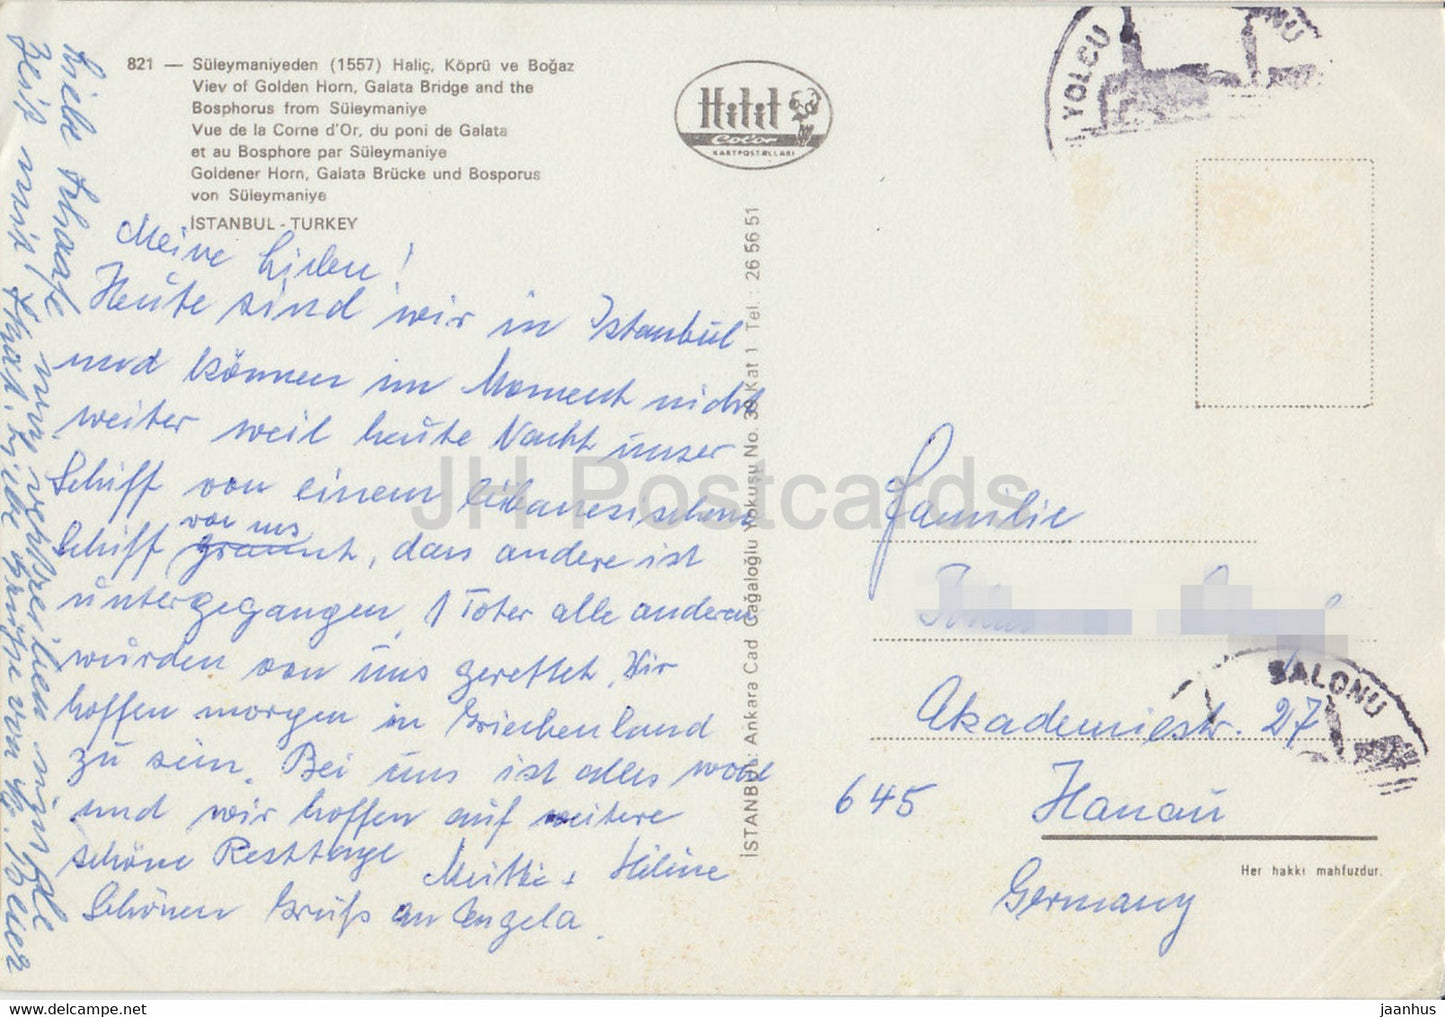 821 — Süleymaniyeden (1557) Haliç, Köprü ve Boğaz
Viev of Golden Horn, Galata Bridge and the
Bosphorus from Süleymaniye
Vue de la Corne d'Or, du poni de Galata
et au Bosphore par Süleymaniye
Goldener Horn, Galata Brücke und Bosporus
von Süleymaniye
İSTANBUL - TURKEY
Hitit
Color
KARTPOSTALLARI
YOLCU
Meine Lieben!
Heute sind wir in Istanbul
und können im Moment nicht
weiter weil heute Nacht unser
Schiff von einem libanesischen
Schiff gerammt, das andere ist
von uns
untergegangen, 1 Toter alle anderen
wurden von uns gerettet. Wir
hoffen morgen in Griechenland
zu sein. Bei uns ist alles wohl
und wir hoffen auf weitere
schöne Resttage
Mutti +
Schönen Gruß an Angela.
Zeit mit
Liebe Grüße von
İSTANBUL. Ankara Cad Cağaloğlu Yokuşu No. 39 Kat 1 Tel.: 26 56 51
JH Postcards
Familie
Akademiestr. 27
SALONU
645 Hanau
Germany
Her hakkı mahfuzdur.
jaanhus